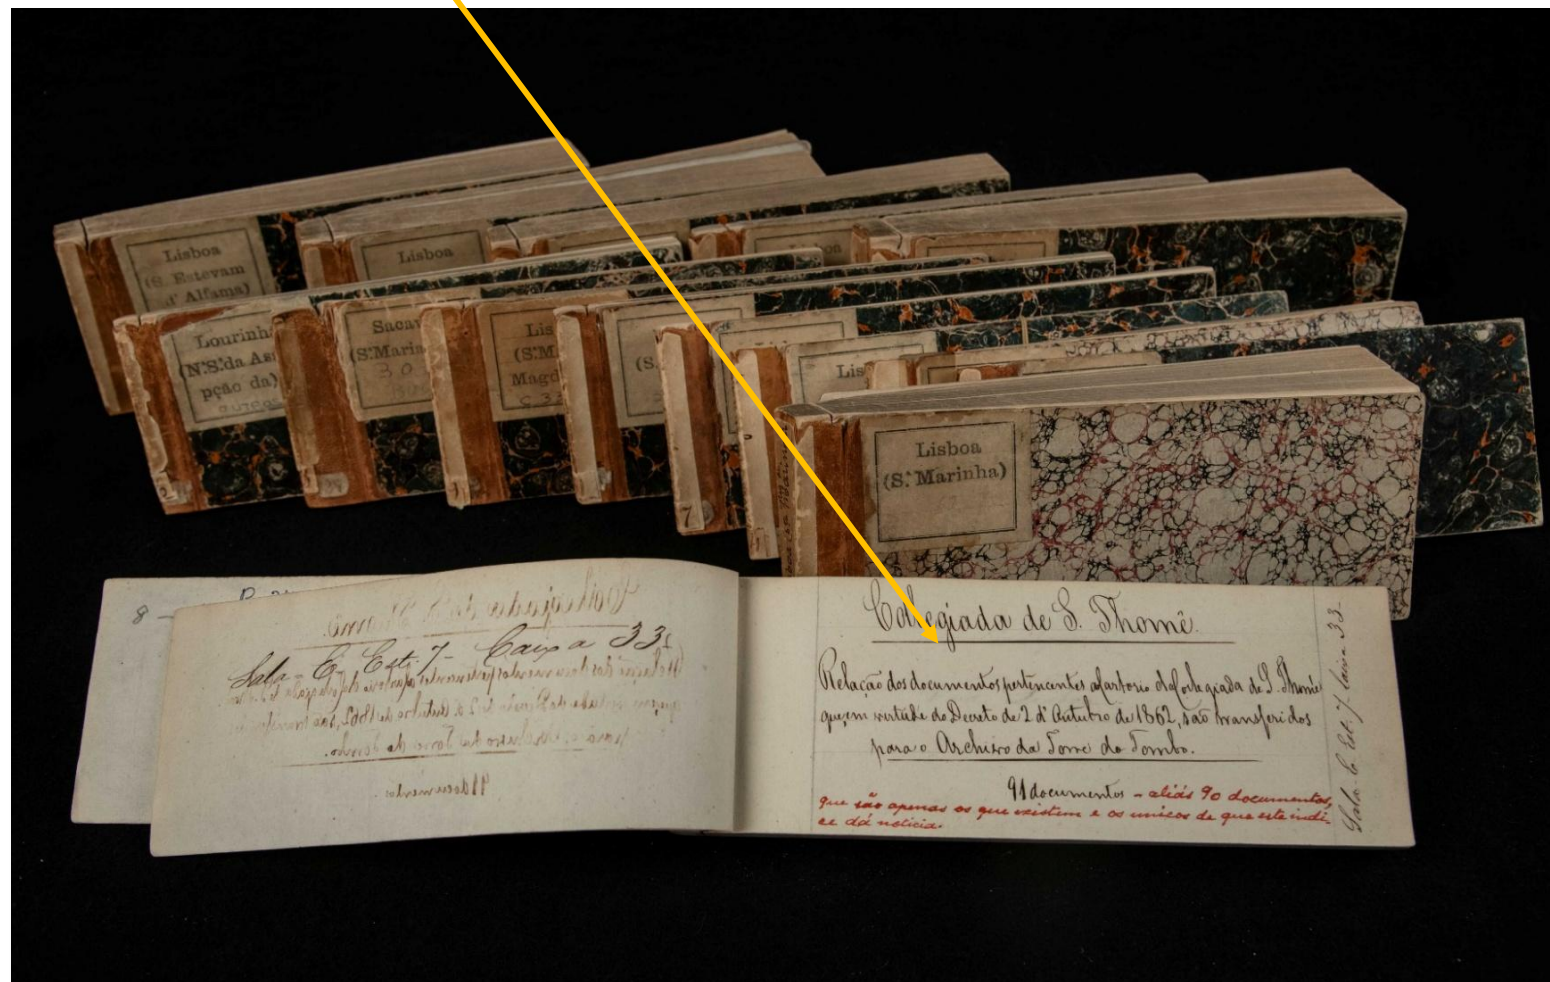 Lisboa
(S. Estevam
d' Alfama)
Lisboa
Lourinh
(N.S.da As
pção da)
Sacav
(S.Marin
30
Lis
(S.M.
Magd
C. 33
(S.
Lis
7
Lisboa
(S.ª Marinha)
8 —
Sala - C - Est. 7 - Caixa 33
Collegiada de S. Thomé
Relação dos documentos pertencentes ao Cartorio da Collegiada de S. Thomé
que, em virtude do Decreto de 2 d'Outubro de 1862, são transferidos
para o Archivo da Torre do Tombo.
91 documentos - aliás 90 documentos,
que são apenas os que existem e os unicos de que este indi-
ce dá noticia.
Sala C Est. 7 Caixa 33